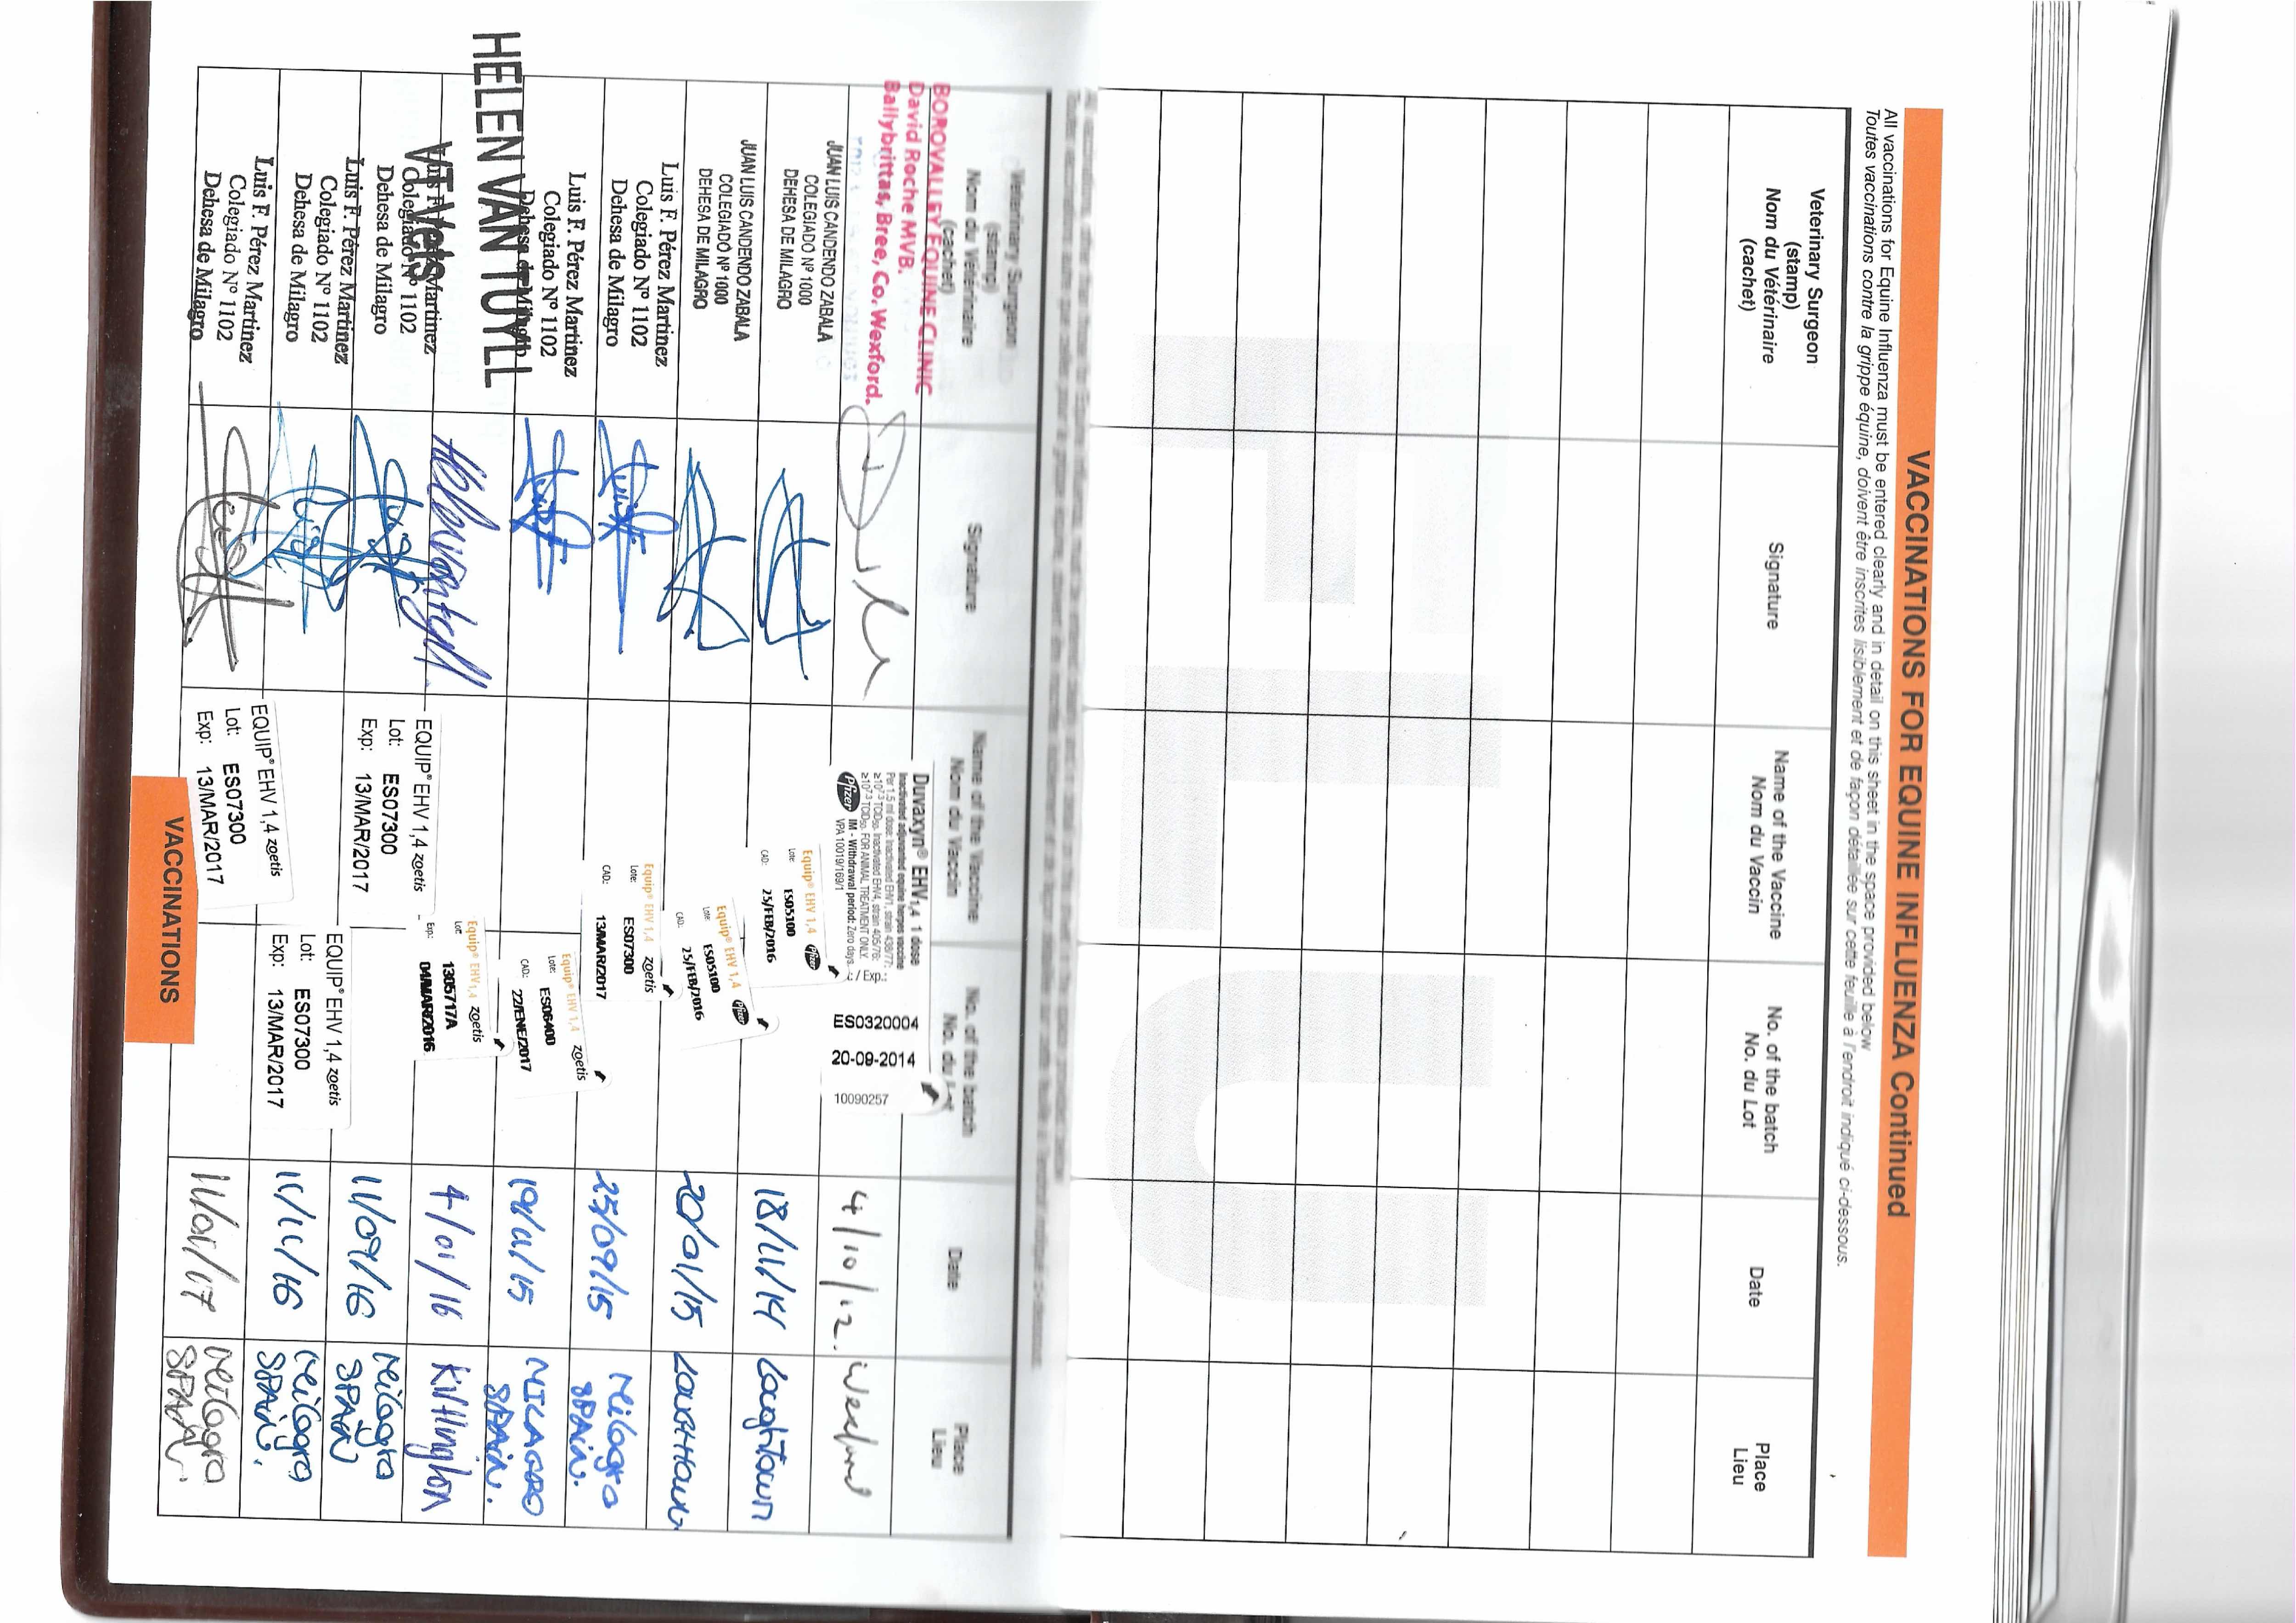 VACCINATIONS FOR EQUINE INFLUENZA Continued
All vaccinations for Equine Influenza must be entered clearly and in detail on this sheet in the space provided below
Toutes vaccinations contre la grippe équine, doivent être inscrites lisiblement et de façon détaillée sur cette feuille à l'endroit indiqué ci-dessous.
Veterinary Surgeon
(stamp)
Nom du Vétérinaire
(cachet)
Signature
Name of the Vaccine
Nom du Vaccin
No. of the batch
No. du Lot
Date
Place
Lieu
Veterinary Surgeon
(stamp)
Nom du Vétérinaire
(cachet)
Signature
Name of the Vaccine
Nom du Vaccin
No. of the batch
No. du Lot
Date
Place
Lieu
BOROVALLEY EQUINE CLINIC
David Roche MVB.
Ballybrittas, Bree, Co. Wexford.
Duvaxyn® EHV1,4 1 dose
Inactivated adjuvanted equine herpes vaccine
Per 1.5 ml dose: Inactivated EHV1, strain 438/77:
≥10^7.3 TCID50. Inactivated EHV4, strain 405/76:
≥10^7.3 TCID50. FOR ANIMAL TREATMENT ONLY.
IM - Withdrawal period: Zero days.
/ Exp.:
Pfizer
VPA 10019/169/1
ES0320004
20-09-2014
10090257
4/10/12.
Wexford
JUAN LUIS CANDENDO ZABALA
COLEGIADO Nº 1000
DEHESA DE MILAGRO
Equip® EHV 1,4 Pfizer
Lote: ES05100
CAD: 25/FEB/2016
18/11/14
Loughtown
JUAN LUIS CANDENDO ZABALA
COLEGIADO Nº 1000
DEHESA DE MILAGRO
Equip® EHV 1,4 Pfizer
Lote: ES05100
CAD: 25/FEB/2016
20/01/15
Luis F. Pérez Martinez
Colegiado Nº 1102
Dehesa de Milagro
Equip® EHV 1,4 zoetis
Lote: ES07300
CAD: 13/MAR/2017
25/09/15
Milagro
SPAIN.
Luis F. Pérez Martinez
Colegiado Nº 1102
Dehesa de Milagro
Equip® EHV 1,4 zoetis
Lote: ES06400
CAD: 22/ENE/2017
19/11/15
MILAGRO
SPAIN.
HELEN VAN TUYLL
VT Vets
Equip® EHV1,4 zoetis
Lot: 1305717A
Exp: 04/MAR/2016
4/01/16
Kirtlington
Luis F. Pérez Martinez
Colegiado Nº 1102
Dehesa de Milagro
EQUIP® EHV 1,4 zoetis
Lot: ES07300
Exp: 13/MAR/2017
11/09/16
Milagro
SPAIN
Luis F. Pérez Martinez
Colegiado Nº 1102
Dehesa de Milagro
EQUIP® EHV 1,4 zoetis
Lot: ES07300
Exp: 13/MAR/2017
11/11/16
Milagro
SPAIN.
Luis F. Pérez Martinez
Colegiado Nº 1102
Dehesa de Milagro
EQUIP® EHV 1,4 zoetis
Lot: ES07300
Exp: 13/MAR/2017
11/01/17
Milagro
SPAIN.
VACCINATIONS